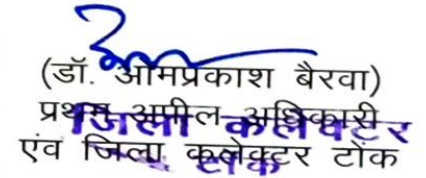 (डॉ. ओमप्रकाश बैरवा)
प्रथम अपील अधिकारी
जिला कलेक्टर
एंव जिला कलेक्टर टोंक
टोंक